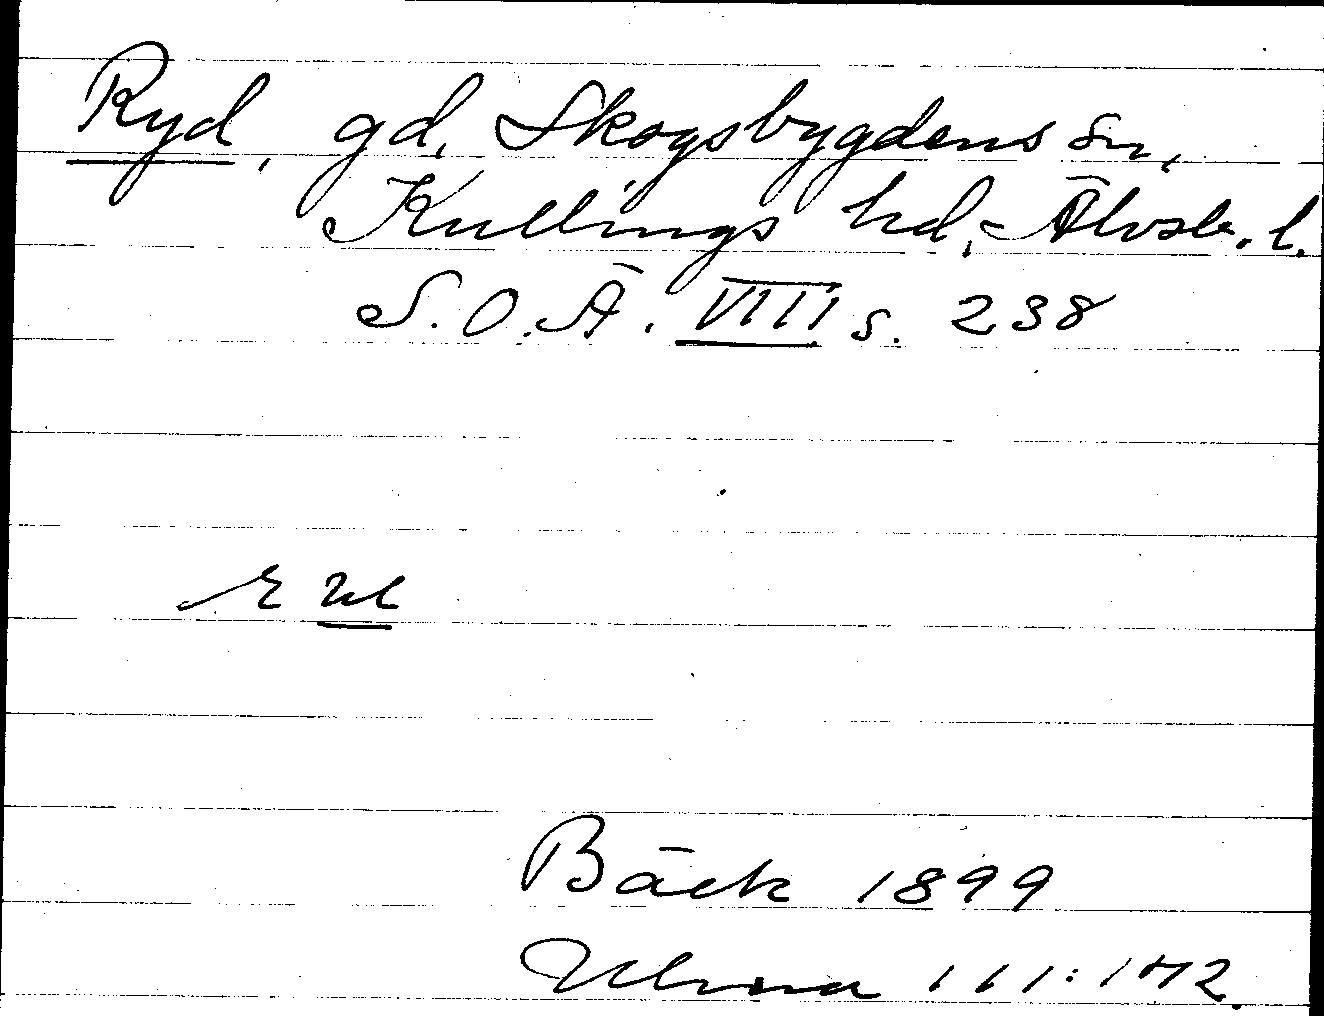 Ryd, gd, Skogsbygdens sn,
Kullings hd, Älvsb. l.
S. O. Ä. VIII s. 238
Bäck 1899
Ulma 111:172.